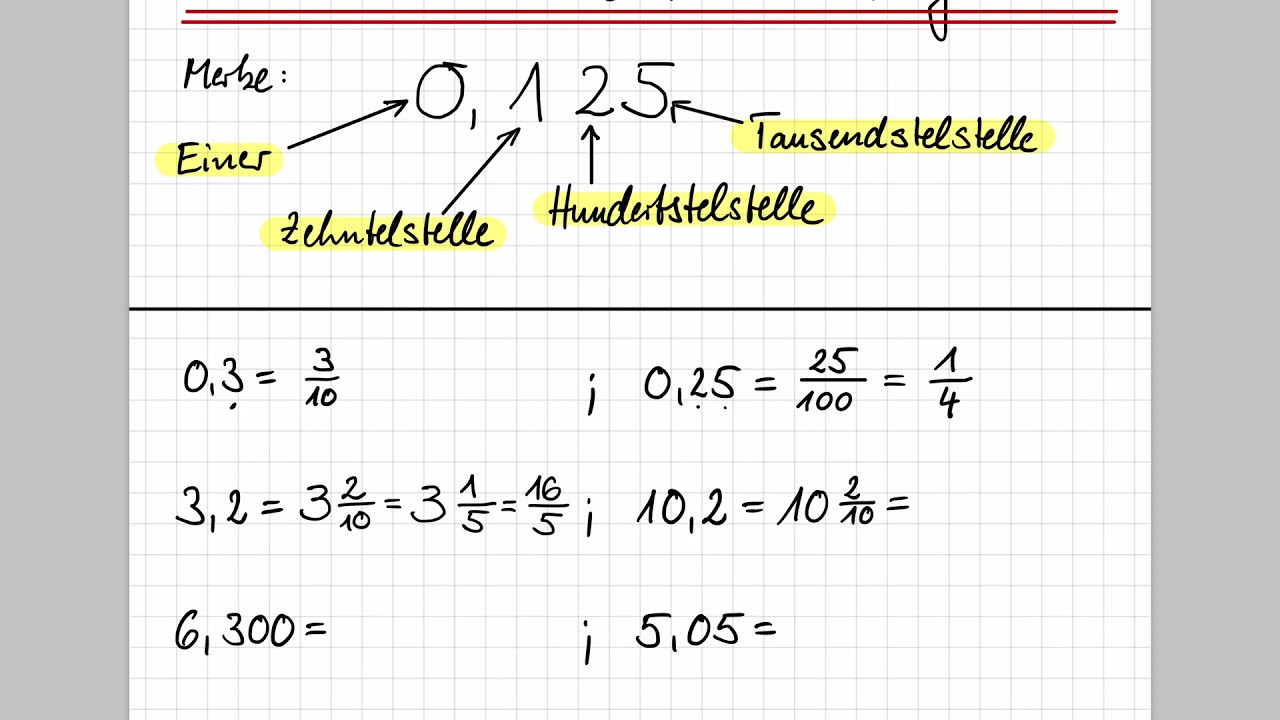 Merke: 0,125
Einer
Tausendstelstelle
Zehntelstelle
Hundertstelstelle
0,3 = 3/10 ; 0,25 = 25/100 = 1/4
3,2 = 3 2/10 = 3 1/5 = 16/5 ; 10,2 = 10 2/10 =
6,300 = ; 5,05 =